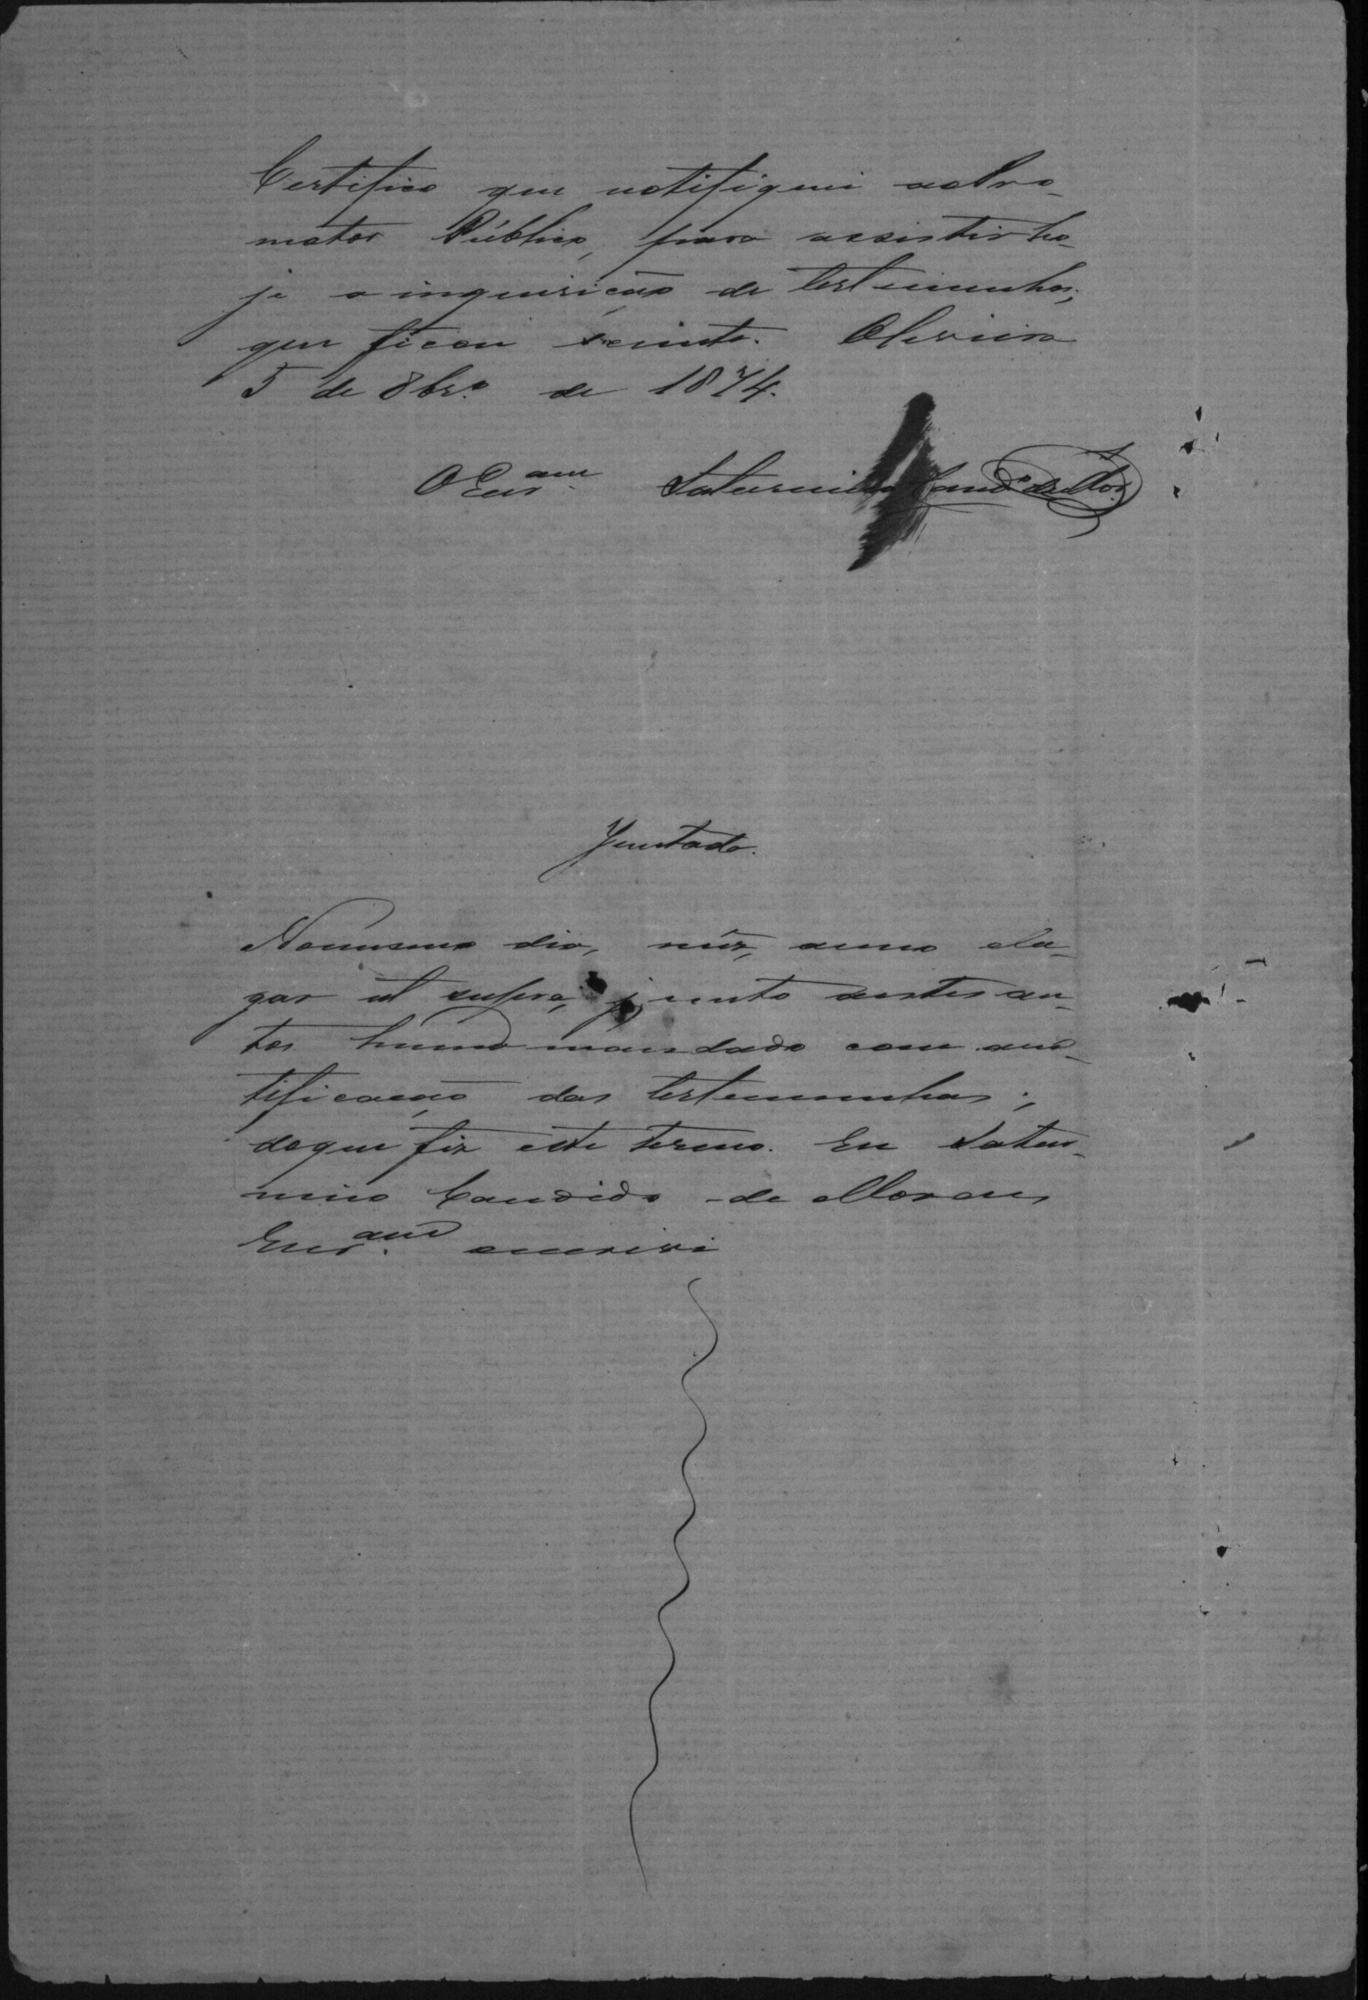 Certifico que notifiquei ao Pro-
motor Publico, para assistir ho-
je a inquirição de testemunhas;
que ficou sciente. Oliveira
5 de 8br.º de 1874.
O Escr.am Saturnino Cand.º de Mor.
Juntada.
No mesmo dia, mez, anno e lu-
gar ut supra, junto a estes au-
tos hum mandado com a no-
tificação das testemunhas;
do que fiz este termo. Eu Satur-
nino Candido de Moraes
Escr.am escrevi